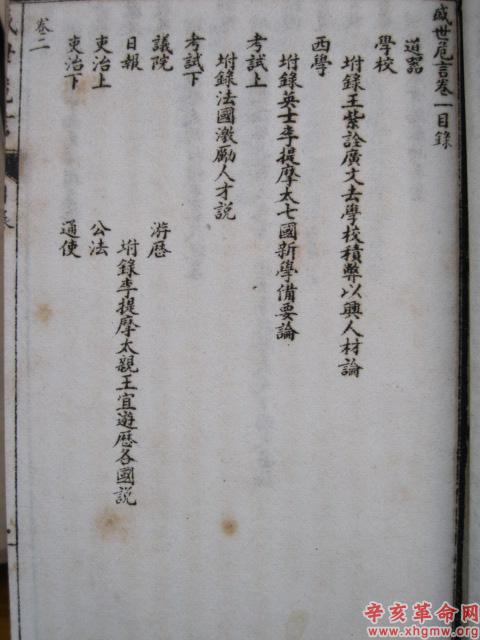 盛世危言卷一目錄
道器
學校
坿錄王紫詮廣文去學校積弊以興人材論
西學
坿錄英士李提摩太七國新學備要論
考試上
坿錄法國激勵人才説
考試下
議院 游歷
日報 坿錄李提摩太親王宜遊歷各國説
吏治上 公法
吏治下 通使
卷二
辛亥革命网
www.xhgmw.org